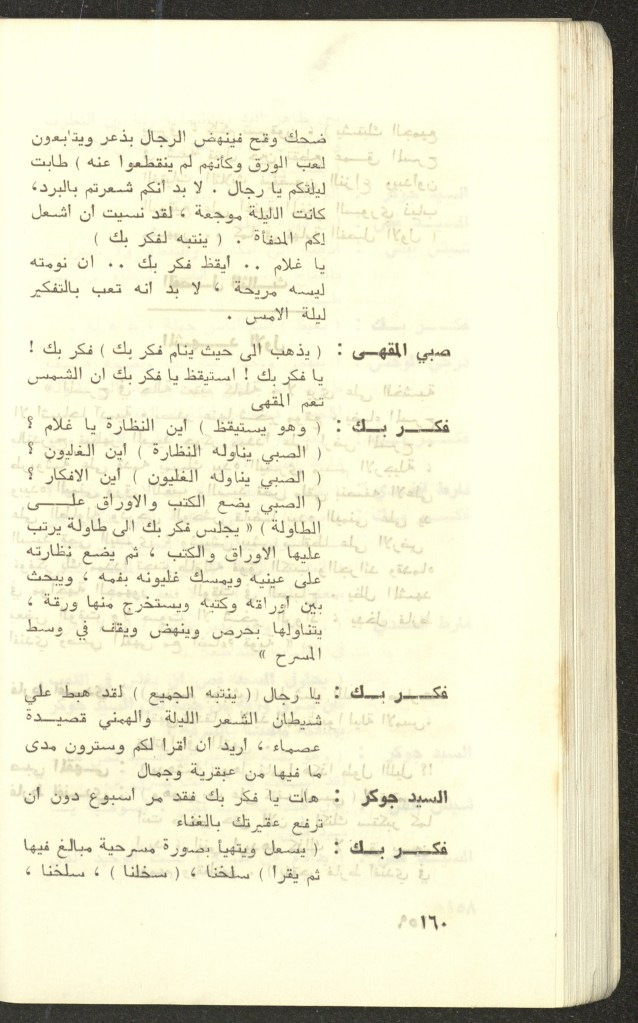 ضحك وقح فينهض الرجال بذعر ويتابعون
لعب الورق وكأنهم لم ينقطعوا عنه ) طابت
ليلتكم يا رجال . لا بد انكم شعرتم بالبرد،
كانت الليلة موجعة ، لقد نسيت ان اشعل
لكم المدفأة . ( ينتبه لفكر بك )
يا غلام .. ايقظ فكر بك .. ان نومته
ليسه مريحة ، لا بد انه تعب بالتفكير
ليلة الامس .
صبي المقهـى : ( يذهب الى حيث ينام فكر بك ) فكر بك !
يا فكر بك ! استيقظ يا فكر بك ان الشمس
تعم المقهى
فكــر بــك : ( وهو يستيقظ ) اين النظارة يا غلام ؟
( الصبي يناوله النظارة ) اين الغليون ؟
( الصبي يناوله الغليون ) اين الافكار ؟
( الصبي يضع الكتب والاوراق علــى
الطاولة ) « يجلس فكر بك الى طاولة يرتب
عليها الاوراق والكتب ، ثم يضع نظارته
على عينيه ويمسك غليونه بفمه ، ويبحث
بين اوراقه وكتبه ويستخرج منها ورقة ،
يتناولها بحرص وينهض ويقف في وسط
المسرح »
فكــر بــك : يا رجال ( ينتبه الجميع ) لقد هبط علي
شيطان الشعر الليلة والهمني قصيــدة
عصماء ، اريد ان اقرأ لكم وسترون مدى
ما فيها من عبقرية وجمال
السيد جوكر : هات يا فكر بك فقد مر اسبوع دون ان
ترفع عقيرتك بالغناء
فكــر بــك : ( يسعل ويتهيأ بصورة مسرحية مبالغ فيها
ثم يقرأ ) سلخنا ، ( سخلنا ) ، سلخنا ،
١٦٠